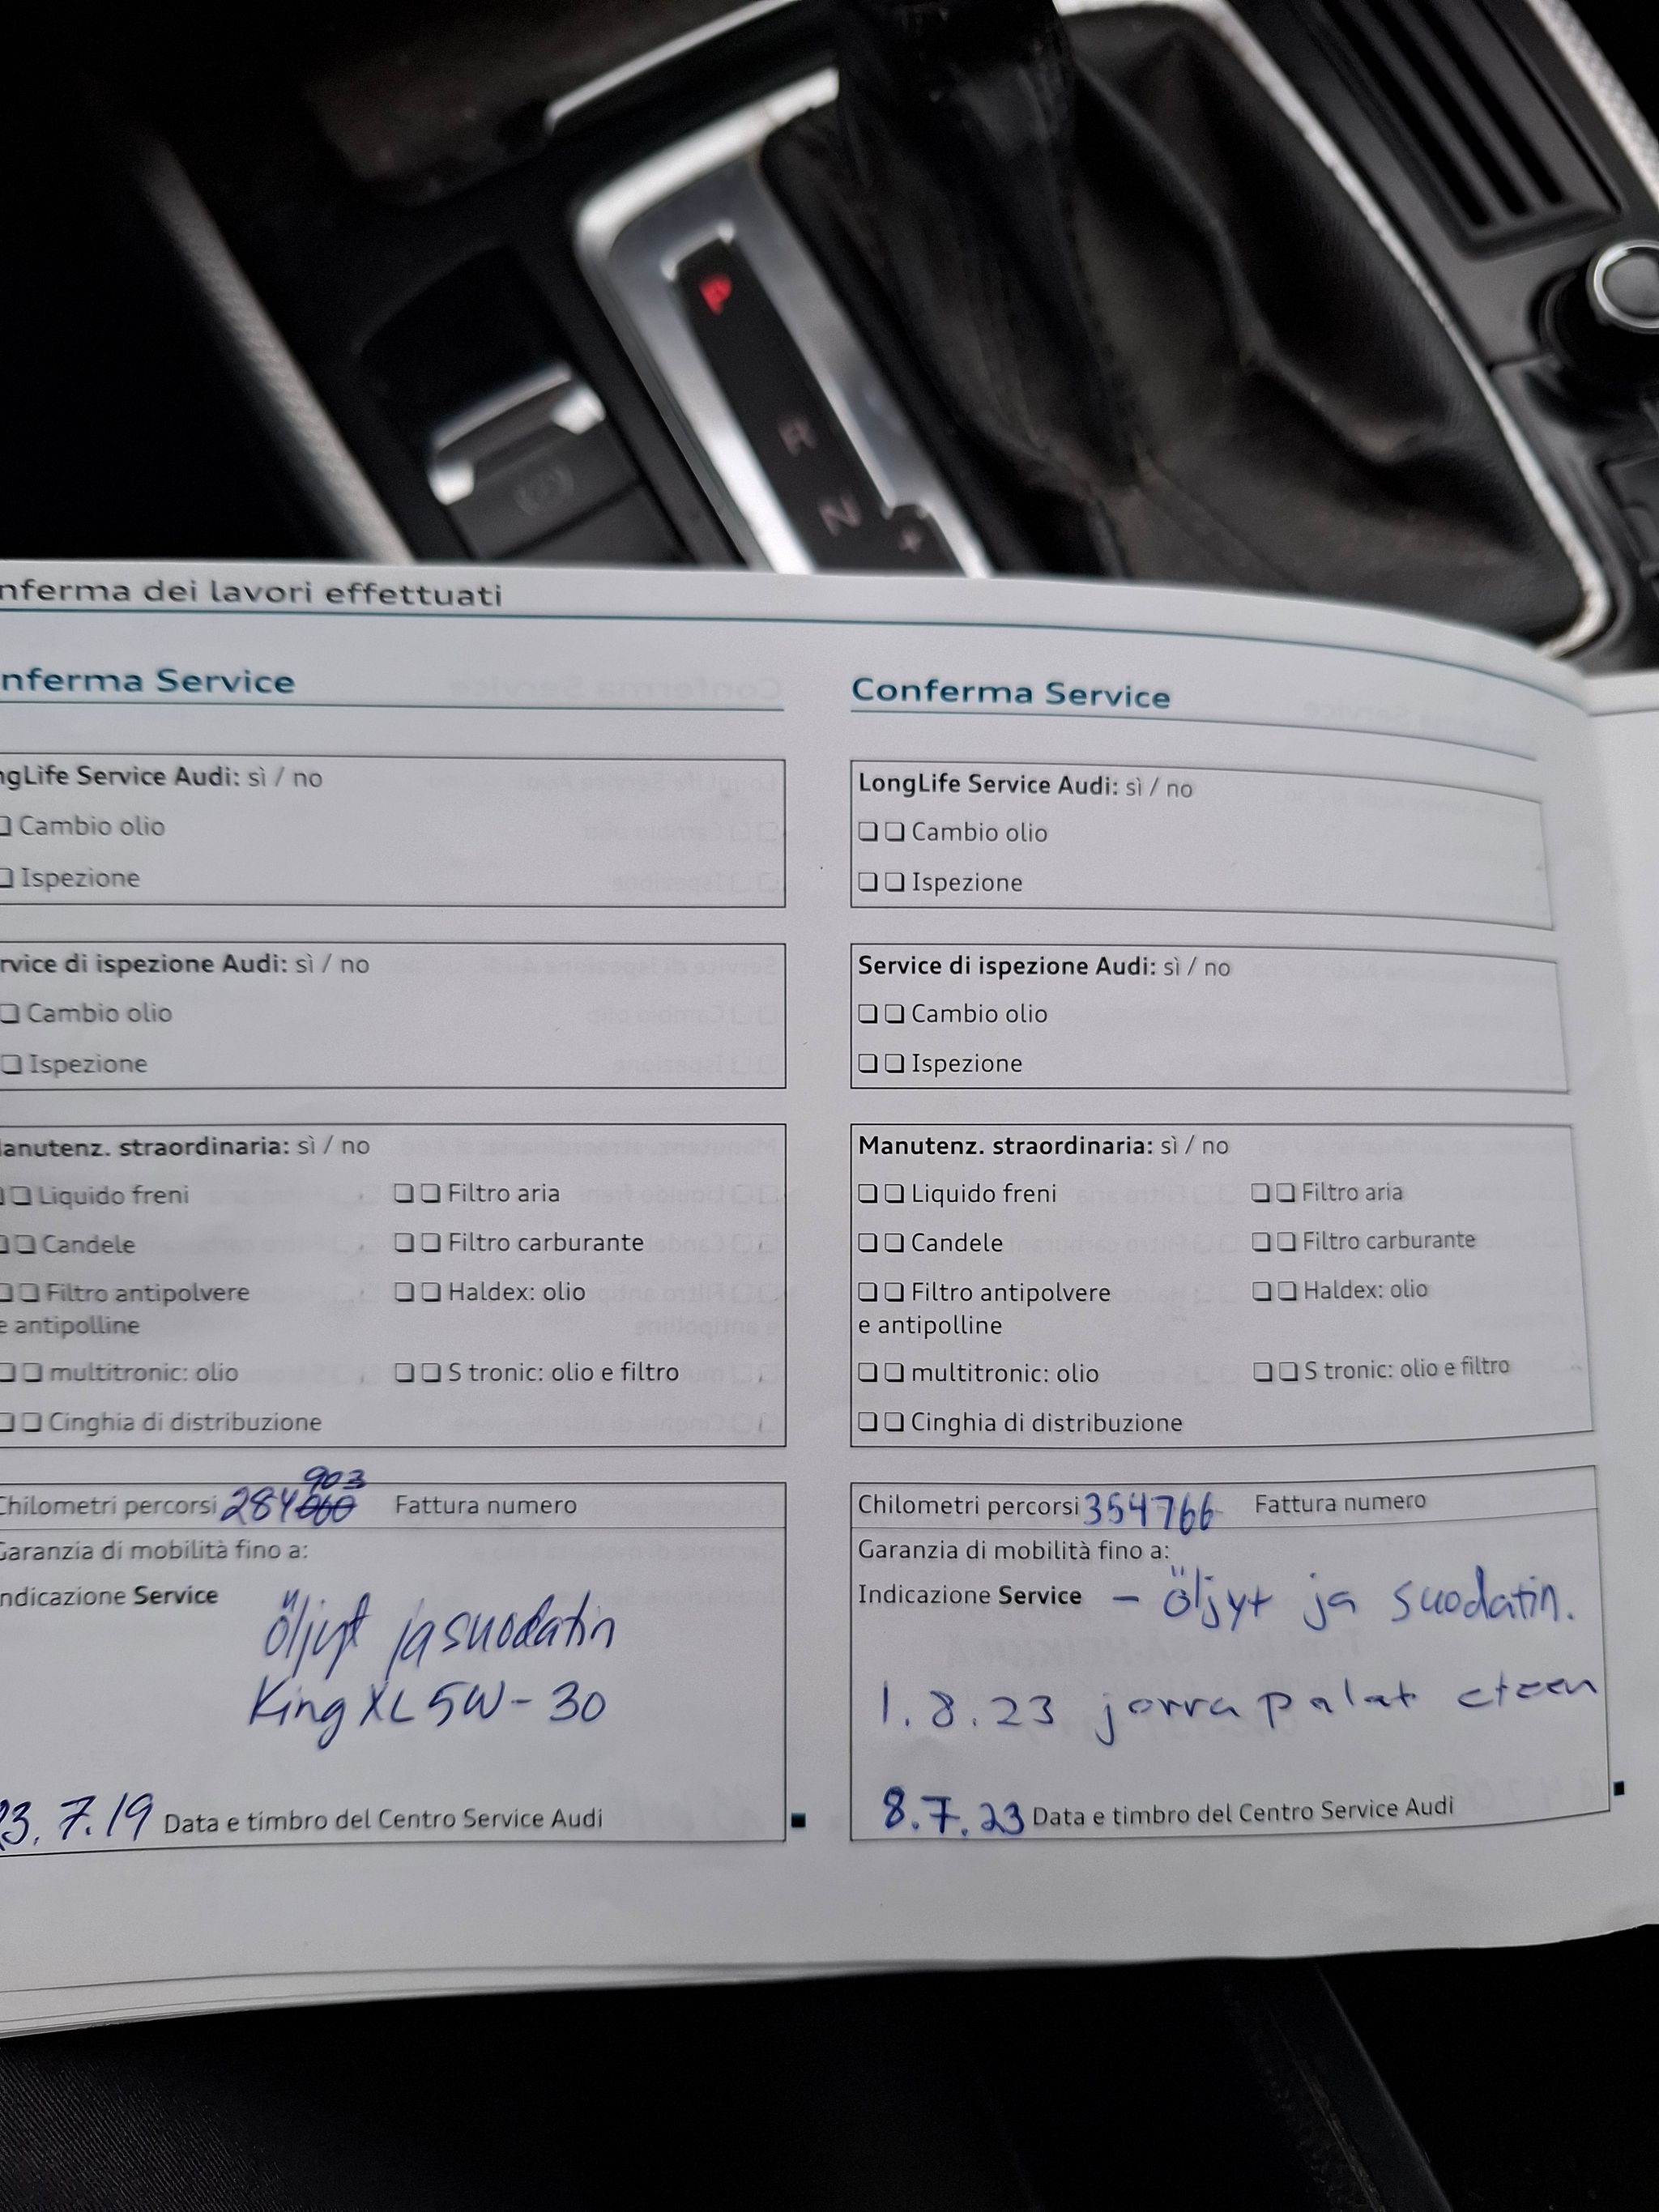 P
R
N
+
nferma dei lavori effettuati
nferma Service
ngLife Service Audi: sì / no
Cambio olio
Ispezione
rvice di ispezione Audi: sì / no
Cambio olio
Ispezione
anutenz. straordinaria: sì / no
Liquido freni Filtro aria
Candele Filtro carburante
Filtro antipolvere Haldex: olio
e antipolline
multitronic: olio S tronic: olio e filtro
Cinghia di distribuzione
903
Chilometri percorsi 284060 Fattura numero
Garanzia di mobilità fino a:
ndicazione Service
öljyt ja suodatin
King XL 5W-30
23.7.19 Data e timbro del Centro Service Audi
Conferma Service
LongLife Service Audi: sì / no
Cambio olio
Ispezione
Service di ispezione Audi: sì / no
Cambio olio
Ispezione
Manutenz. straordinaria: sì / no
Liquido freni Filtro aria
Candele Filtro carburante
Filtro antipolvere Haldex: olio
e antipolline
multitronic: olio S tronic: olio e filtro
Cinghia di distribuzione
Chilometri percorsi 354766 Fattura numero
Garanzia di mobilità fino a:
Indicazione Service - öljyt ja suodatin.
1.8.23 jarrupalat eteen
8.7.23 Data e timbro del Centro Service Audi